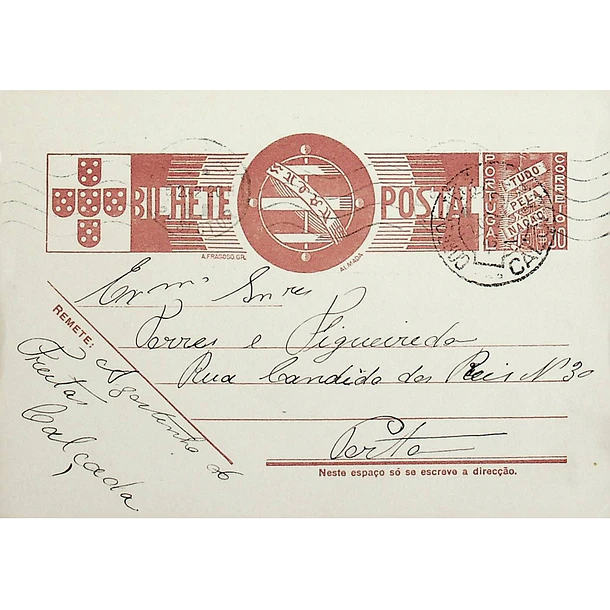 BILHETE POSTAL
PORTUGAL
CORREIOS
TUDO
PELA
NAÇÃO
A. FRAGOSO, GR.
ALMADA
Exmºs Snres
Torres e Figueiredo
Rua Candido dos Reis Nº 30
Porto
Neste espaço só se escreve a direcção.
REMETE: Agostinho de
Freitas
Calçada